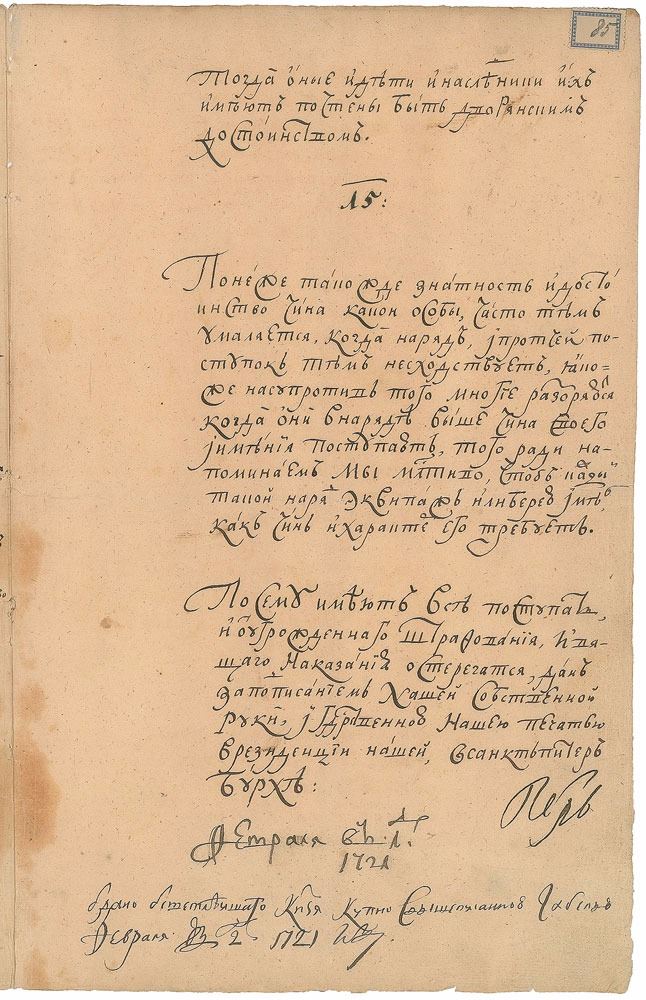 85
Тогда оные и дѣти и наслѣники ихъ
имѣютъ почтены быть дворянскимъ
достоинствомъ.
15:
Понеже такожде знатность и досто
инство чина какои особы, часто тѣмъ
умаляется, когда нарядъ, ї протчеи по-
ступокъ тѣмъ несходствуетъ, яко-
же насупротивъ того многие разоряются
когда они внарядѣ выше чина своего
ї имѣния поступаютъ, того ради на-
поминаемъ мы млтиво, чтобъ каждыи
такои наряд экипажъ и либерею имѣлъ
какъ чинъ и характеръ его требуетъ.
По сему имѣютъ всѣ поступать,
и оутрожденнаго штрафования, и вя-
щаго наказания остерегатся, данъ
заподписаниемъ нашеи собственнои
руки, ї гдрственною нашею печатью
врезиденциi нашеи, всанктъпитеръ
бурхѣ:
Петръ
Февраля въ 1 д:
1721
Февраля 2 1721